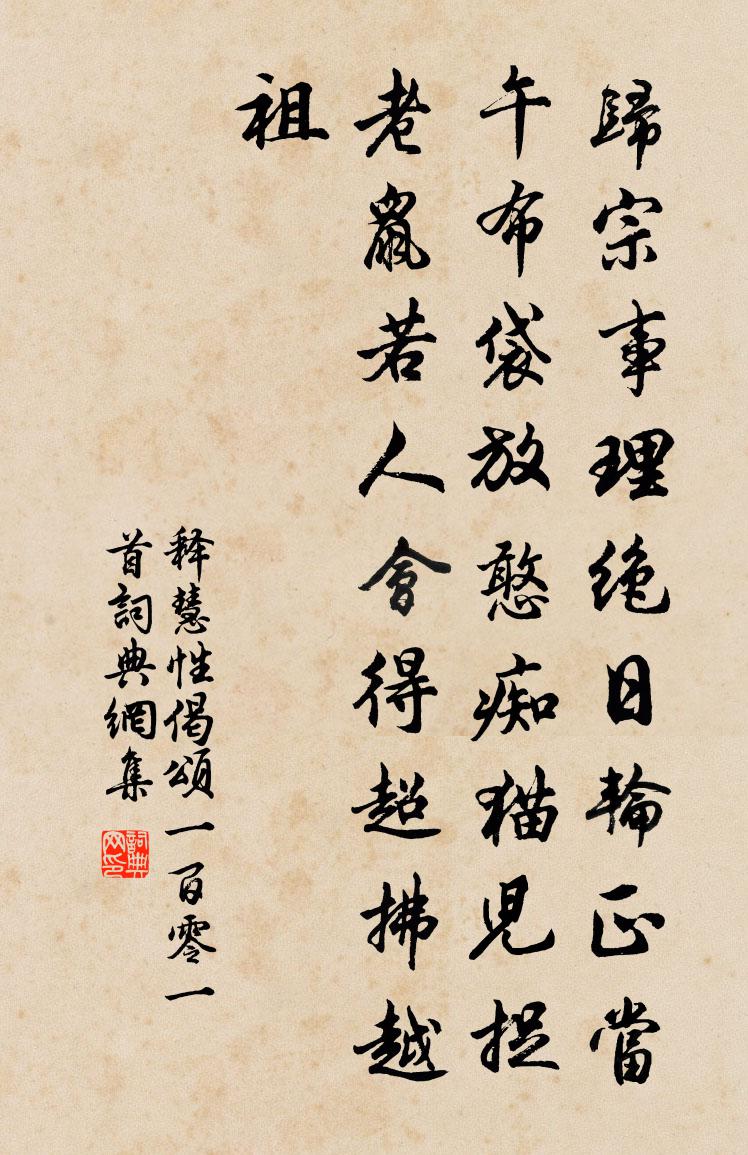 歸宗事理絶日輪正當
午布袋放憨痴猫児捉
老鼠若人會得超拂越
祖
释慧性偈頌一百零一
首詞典網集
詞典
网印